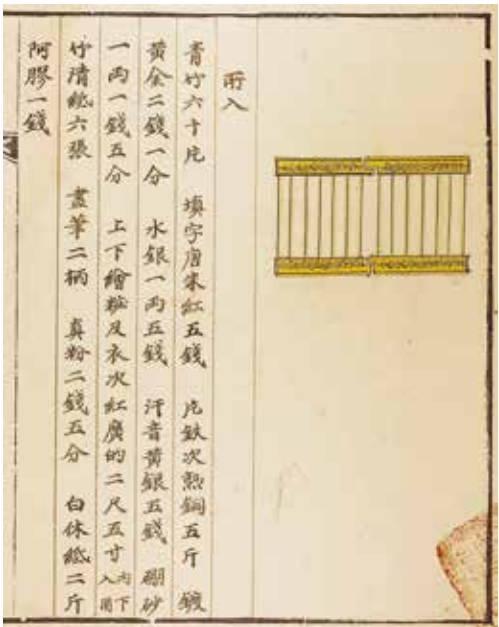 所入
青竹六十片 填字唐朱紅五錢 片鉄次熟銅五斤 鍍
黄金二錢一分 水銀一兩五錢 汗音黄銀五錢 硼砂
一兩一錢五分 上下繪粧及衣次紅廣的二尺五寸 內下入用
竹清紙六張 畫筆二柄 真粉二錢五分 白休紙二斤
阿膠一錢